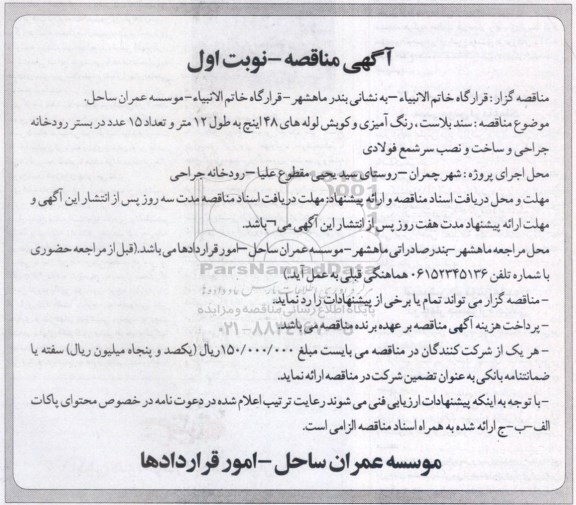 آگهی مناقصه – نوبت اول
مناقصه گزار: قرارگاه خاتم الانبیاء – به نشانی بندر ماهشهر – قرارگاه خاتم الانبیاء – موسسه عمران ساحل.
موضوع مناقصه: سند بلاست، رنگ آمیزی و کوبش لوله های ۴۸ اینچ به طول ۱۲ متر و تعداد ۱۵ عدد در بستر رودخانه
جراحی و ساخت و نصب سرشمع فولادی
محل اجرای پروژه: شهر چمران – روستای سید یحیی مقطوع علیا – رودخانه جراحی
مهلت و محل دریافت اسناد مناقصه و ارائه پیشنهاد: مهلت دریافت اسناد مناقصه مدت سه روز پس از انتشار این آگهی و
مهلت ارائه پیشنهاد مدت هفت روز پس از انتشار این آگهی می – باشد.
محل مراجعه ماهشهر – بندر صادراتی ماهشهر – موسسه عمران ساحل – امور قراردادها می باشد. (قبل از مراجعه حضوری
با شماره تلفن ۰۶۱۵۲۳۴۵۱۳۶ هماهنگی قبلی به عمل آید.)
– مناقصه گزار می تواند تمام یا برخی از پیشنهادات را رد نماید.
– پرداخت هزینه آگهی مناقصه بر عهده برنده مناقصه می باشد.
– هر یک از شرکت کنندگان در مناقصه می بایست مبلغ ۱۵۰/۰۰۰/۰۰۰ ریال (یکصد و پنجاه میلیون ریال) سفته یا
ضمانتنامه بانکی به عنوان تضمین شرکت در مناقصه ارائه نماید.
– با توجه به اینکه پیشنهادات ارزیابی فنی می شوند رعایت ترتیب اعلام شده در دعوت نامه در خصوص محتوای پاکات
الف – ب – ج ارائه شده به همراه اسناد مناقصه الزامی است.
موسسه عمران ساحل – امور قراردادها
ParsNamadData
پایگاه اطلاع رسانی مناقصه و مزایده